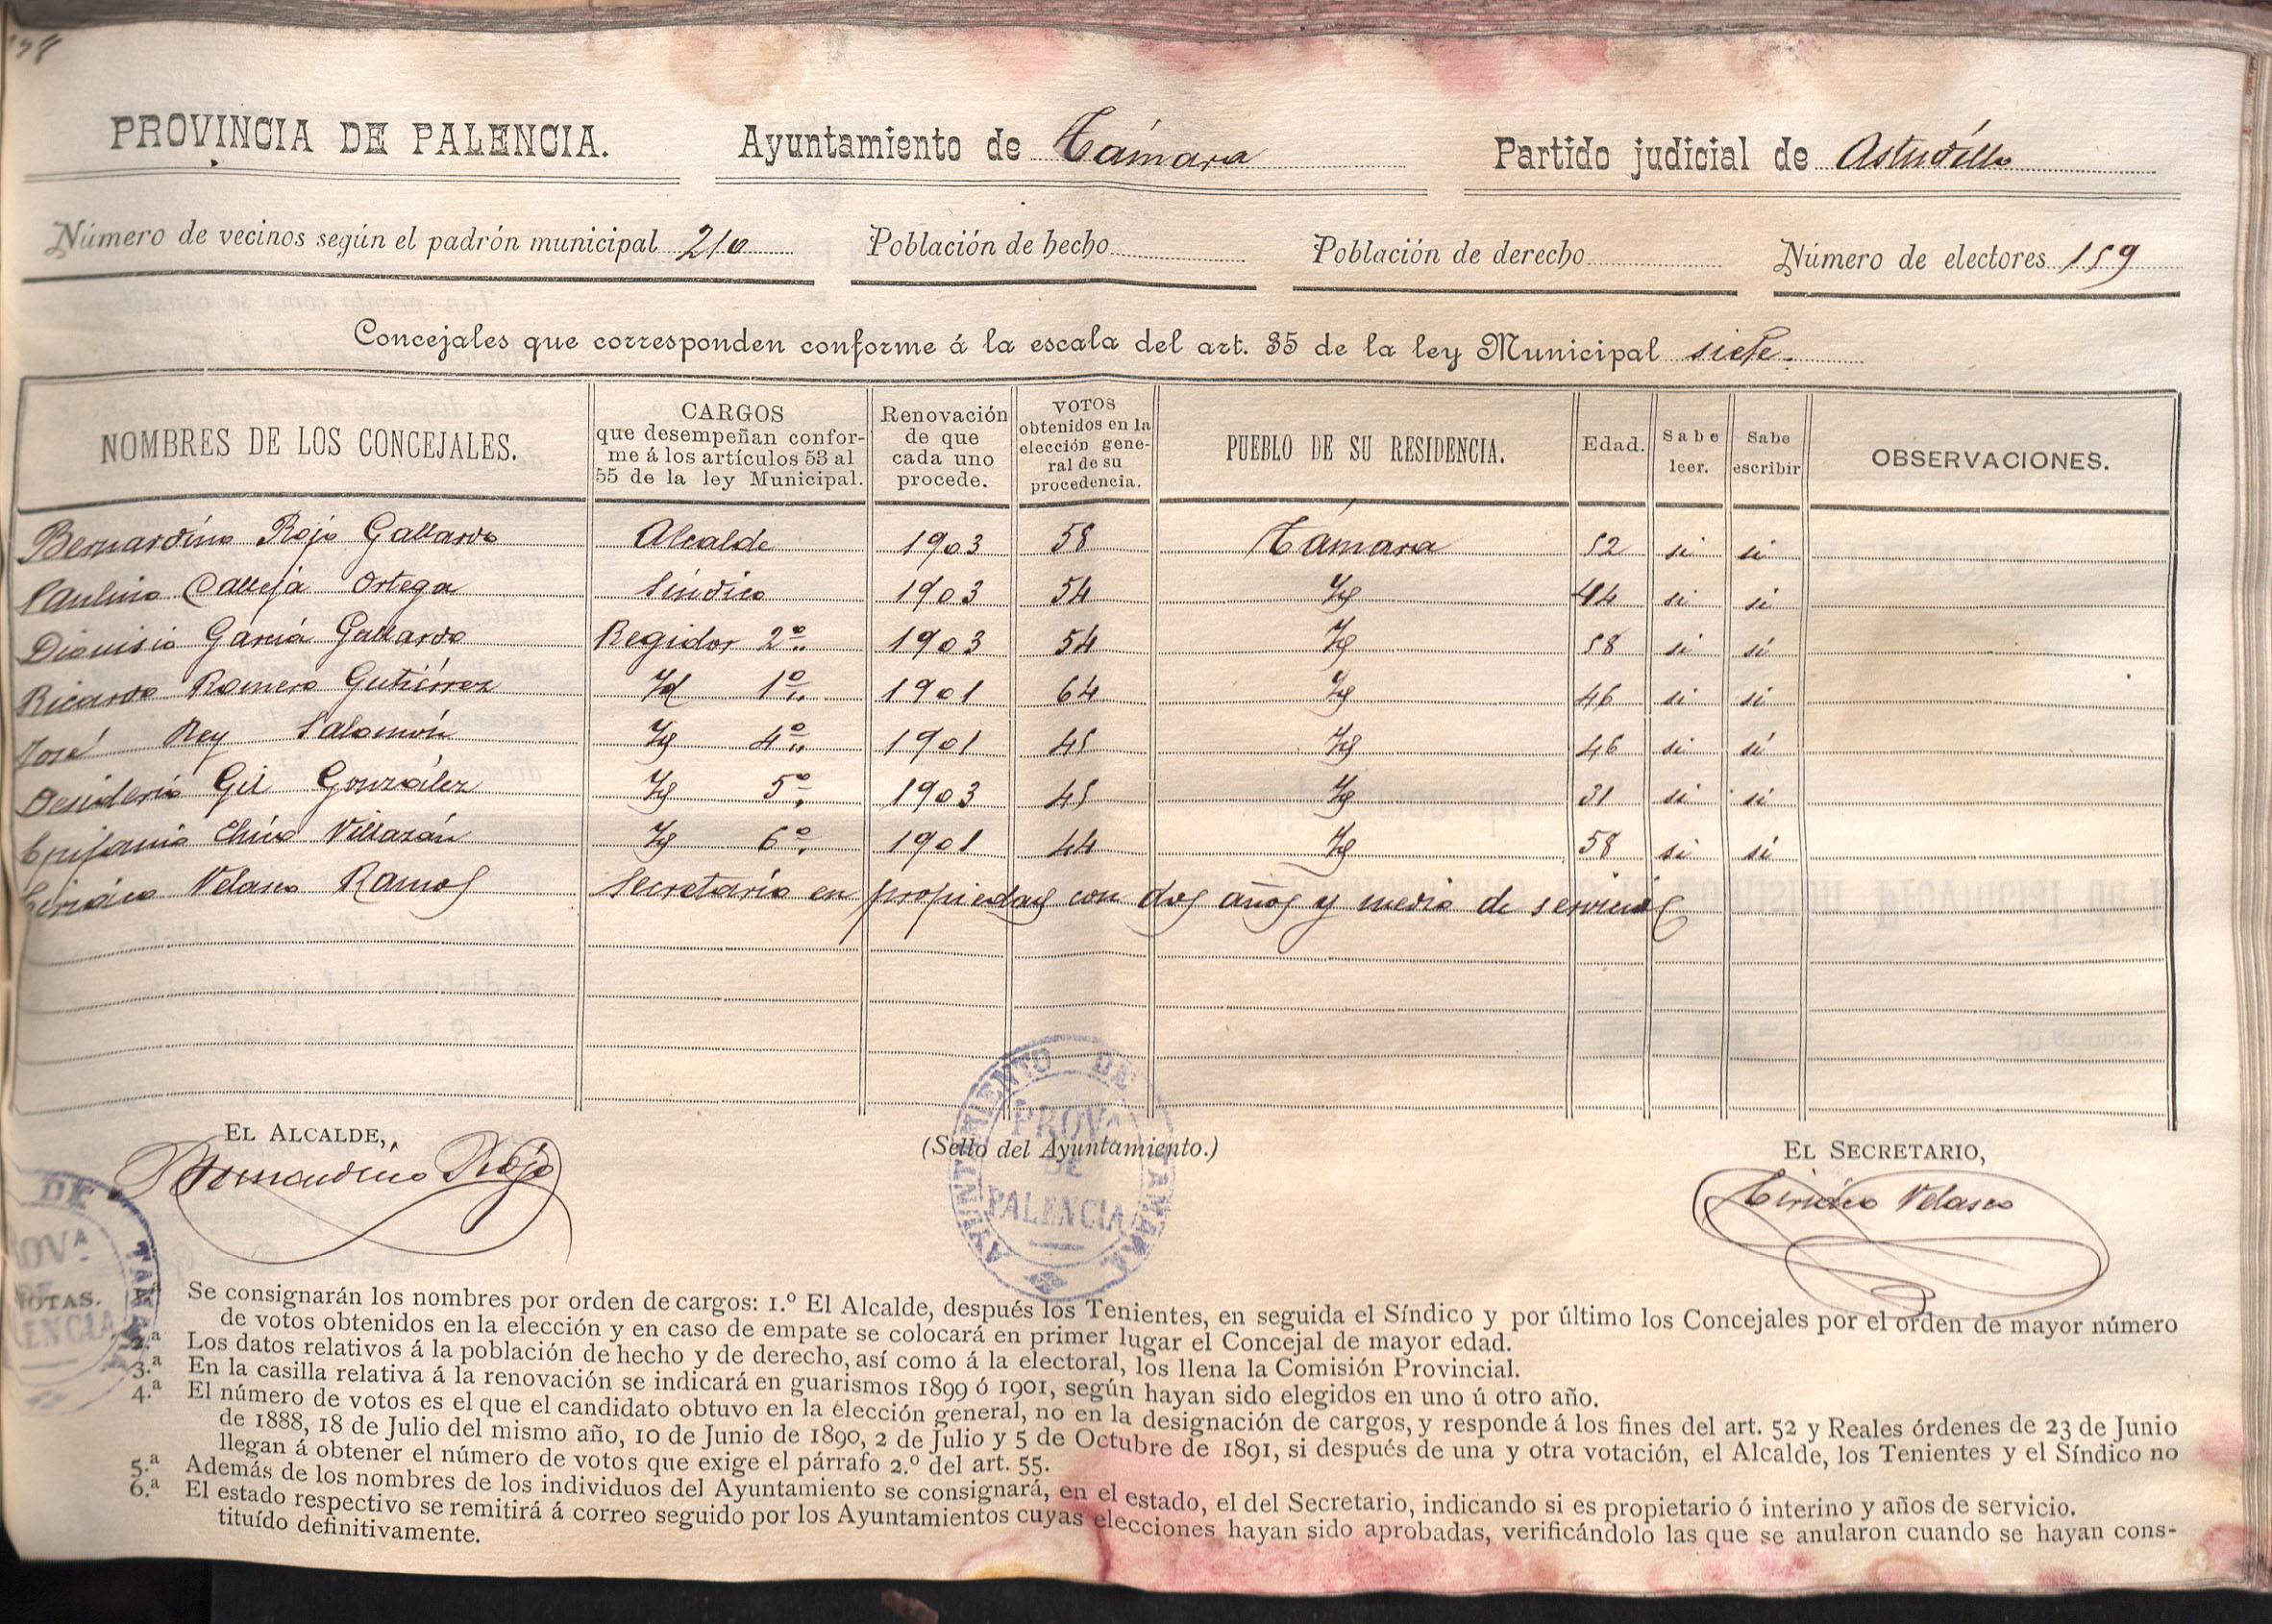 PROVINCIA DE PALENCIA. Ayuntamiento de Támara Partido judicial de Astudillo
Número de vecinos según el padrón municipal 210 Población de hecho Población de derecho Número de electores 159
Concejales que corresponden conforme á la escala del art. 35 de la ley Municipal siete.
NOMBRES DE LOS CONCEJALES. CARGOS que desempeñan conforme á los artículos 53 al 55 de la ley Municipal. Renovación de que cada uno procede. VOTOS obtenidos en la elección general de su procedencia. PUEBLO DE SU RESIDENCIA. Edad. Sabe leer. Sabe escribir OBSERVACIONES.
Bernardino Rojo Gallardo Alcalde 1903 58 Támara 52 si si
Paulino Calleja Ortega Síndico 1903 54 Id 44 si si
Dionisio García Gallardo Regidor 2º 1903 54 Id 58 si si
Ricardo Romero Gutiérrez Id 1º 1901 64 Id 46 si si
José Rey Salomón Id 4º 1901 45 Id 46 si si
Desiderio Gil González Id 5º 1903 45 Id 31 si si
Epifanio Chico Villazán Id 6º 1901 44 Id 58 si si
Ciriáco Velasco Ramos Secretario en propiedad con dos años y medio de servicios
EL ALCALDE, (Sello del Ayuntamiento.) EL SECRETARIO,
Bernardino Rojo
Ciriáco Velasco
AYUNTAMIENTO DE TAMARA
PROVª
DE
PALENCIA
DE TAMA
OVª
DE
LENCIA
NOTAS. Se consignarán los nombres por orden de cargos: 1.º El Alcalde, después los Tenientes, en seguida el Síndico y por último los Concejales por el orden de mayor número
de votos obtenidos en la elección y en caso de empate se colocará en primer lugar el Concejal de mayor edad.
2.ª Los datos relativos á la población de hecho y de derecho, así como á la electoral, los llena la Comisión Provincial.
3.ª En la casilla relativa á la renovación se indicará en guarismos 1899 ó 1901, según hayan sido elegidos en uno ú otro año.
4.ª El número de votos es el que el candidato obtuvo en la elección general, no en la designación de cargos, y responde á los fines del art. 52 y Reales órdenes de 23 de Junio
de 1888, 18 de Julio del mismo año, 10 de Junio de 1890, 2 de Julio y 5 de Octubre de 1891, si después de una y otra votación, el Alcalde, los Tenientes y el Síndico no
llegan á obtener el número de votos que exige el párrafo 2.º del art. 55.
5.ª Además de los nombres de los individuos del Ayuntamiento se consignará, en el estado, el del Secretario, indicando si es propietario ó interino y años de servicio.
6.ª El estado respectivo se remitirá á correo seguido por los Ayuntamientos cuyas elecciones hayan sido aprobadas, verificándolo las que se anularon cuando se hayan cons-
tituído definitivamente.